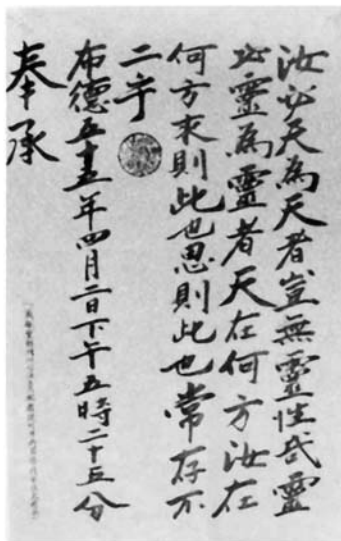 汝必天為天者豈無靈性哉靈
必靈為靈者天在何方汝在
何方求則此也思則此也常存不
二乎
布德五十五年四月二日下午五時二十五分
奉承